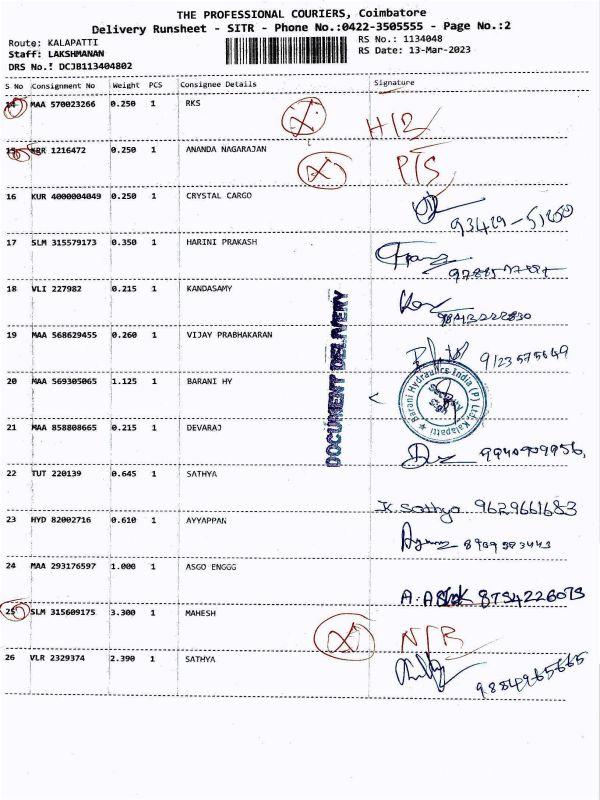 THE PROFESSIONAL COURIERS, Coimbatore
Delivery Runsheet - SITR - Phone No.:0422-3505555 - Page No.:2
Route: KALAPATTI
RS No.: 1134048
Staff: LAKSHMANAN
RS Date: 13-Mar-2023
DRS No.! DCJB113404802
S No Consignment No Weight PCS Consignee Details Signature
14 MAA 570023266 0.250 1 RKS
X H12
15 KBR 1216472 0.250 1 ANANDA NAGARAJAN
X P/S
16 KUR 4000004049 0.250 1 CRYSTAL CARGO
93429-51200
17 SLM 315579173 0.350 1 HARINI PRAKASH
18 VLI 227982 0.215 1 KANDASAMY
19 MAA 568629455 0.260 1 VIJAY PRABHAKARAN
9123575649
20 MAA 569305065 1.125 1 BARANI HY
Barani Hydraulics India (P) Ltd. Kalapatti
Security
DOCUMENT DELIVERY
21 MAA 858808665 0.215 1 DEVARAJ
9940909956
22 TUT 220139 0.645 1 SATHYA
K. Sathya 9629661683
23 HYD 82002716 0.610 1 AYYAPPAN
24 MAA 293176597 1.000 1 ASGO ENGGG
A. Ashok 8754226073
25 SLM 315609175 3.300 1 MAHESH
X N/R
26 VLR 2329374 2.390 1 SATHYA
9884965665